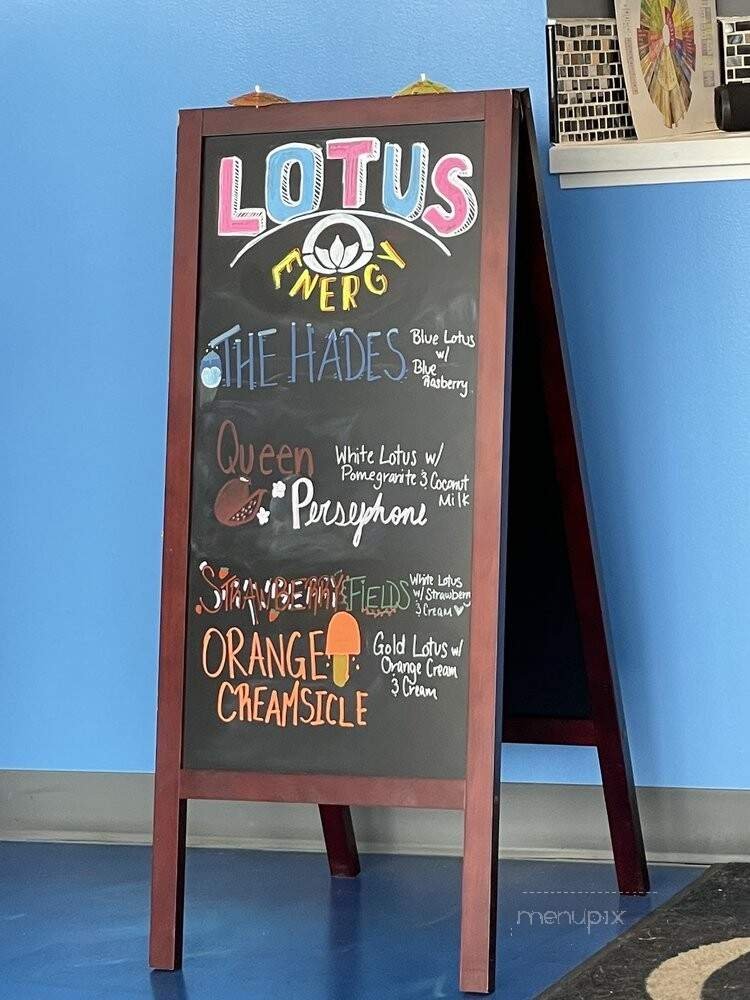 LOTUS
ENERGY
THE HADES
Blue Lotus
w/
Blue
Rasberry
Queen
Persephone
White Lotus w/
Pomegranite & Coconut
Milk
STRAWBERRY FIELDS
White Lotus
w/ Strawberry
& Cream
ORANGE
CREAMSICLE
Gold Lotus w/
Orange Cream
& Cream
menupix